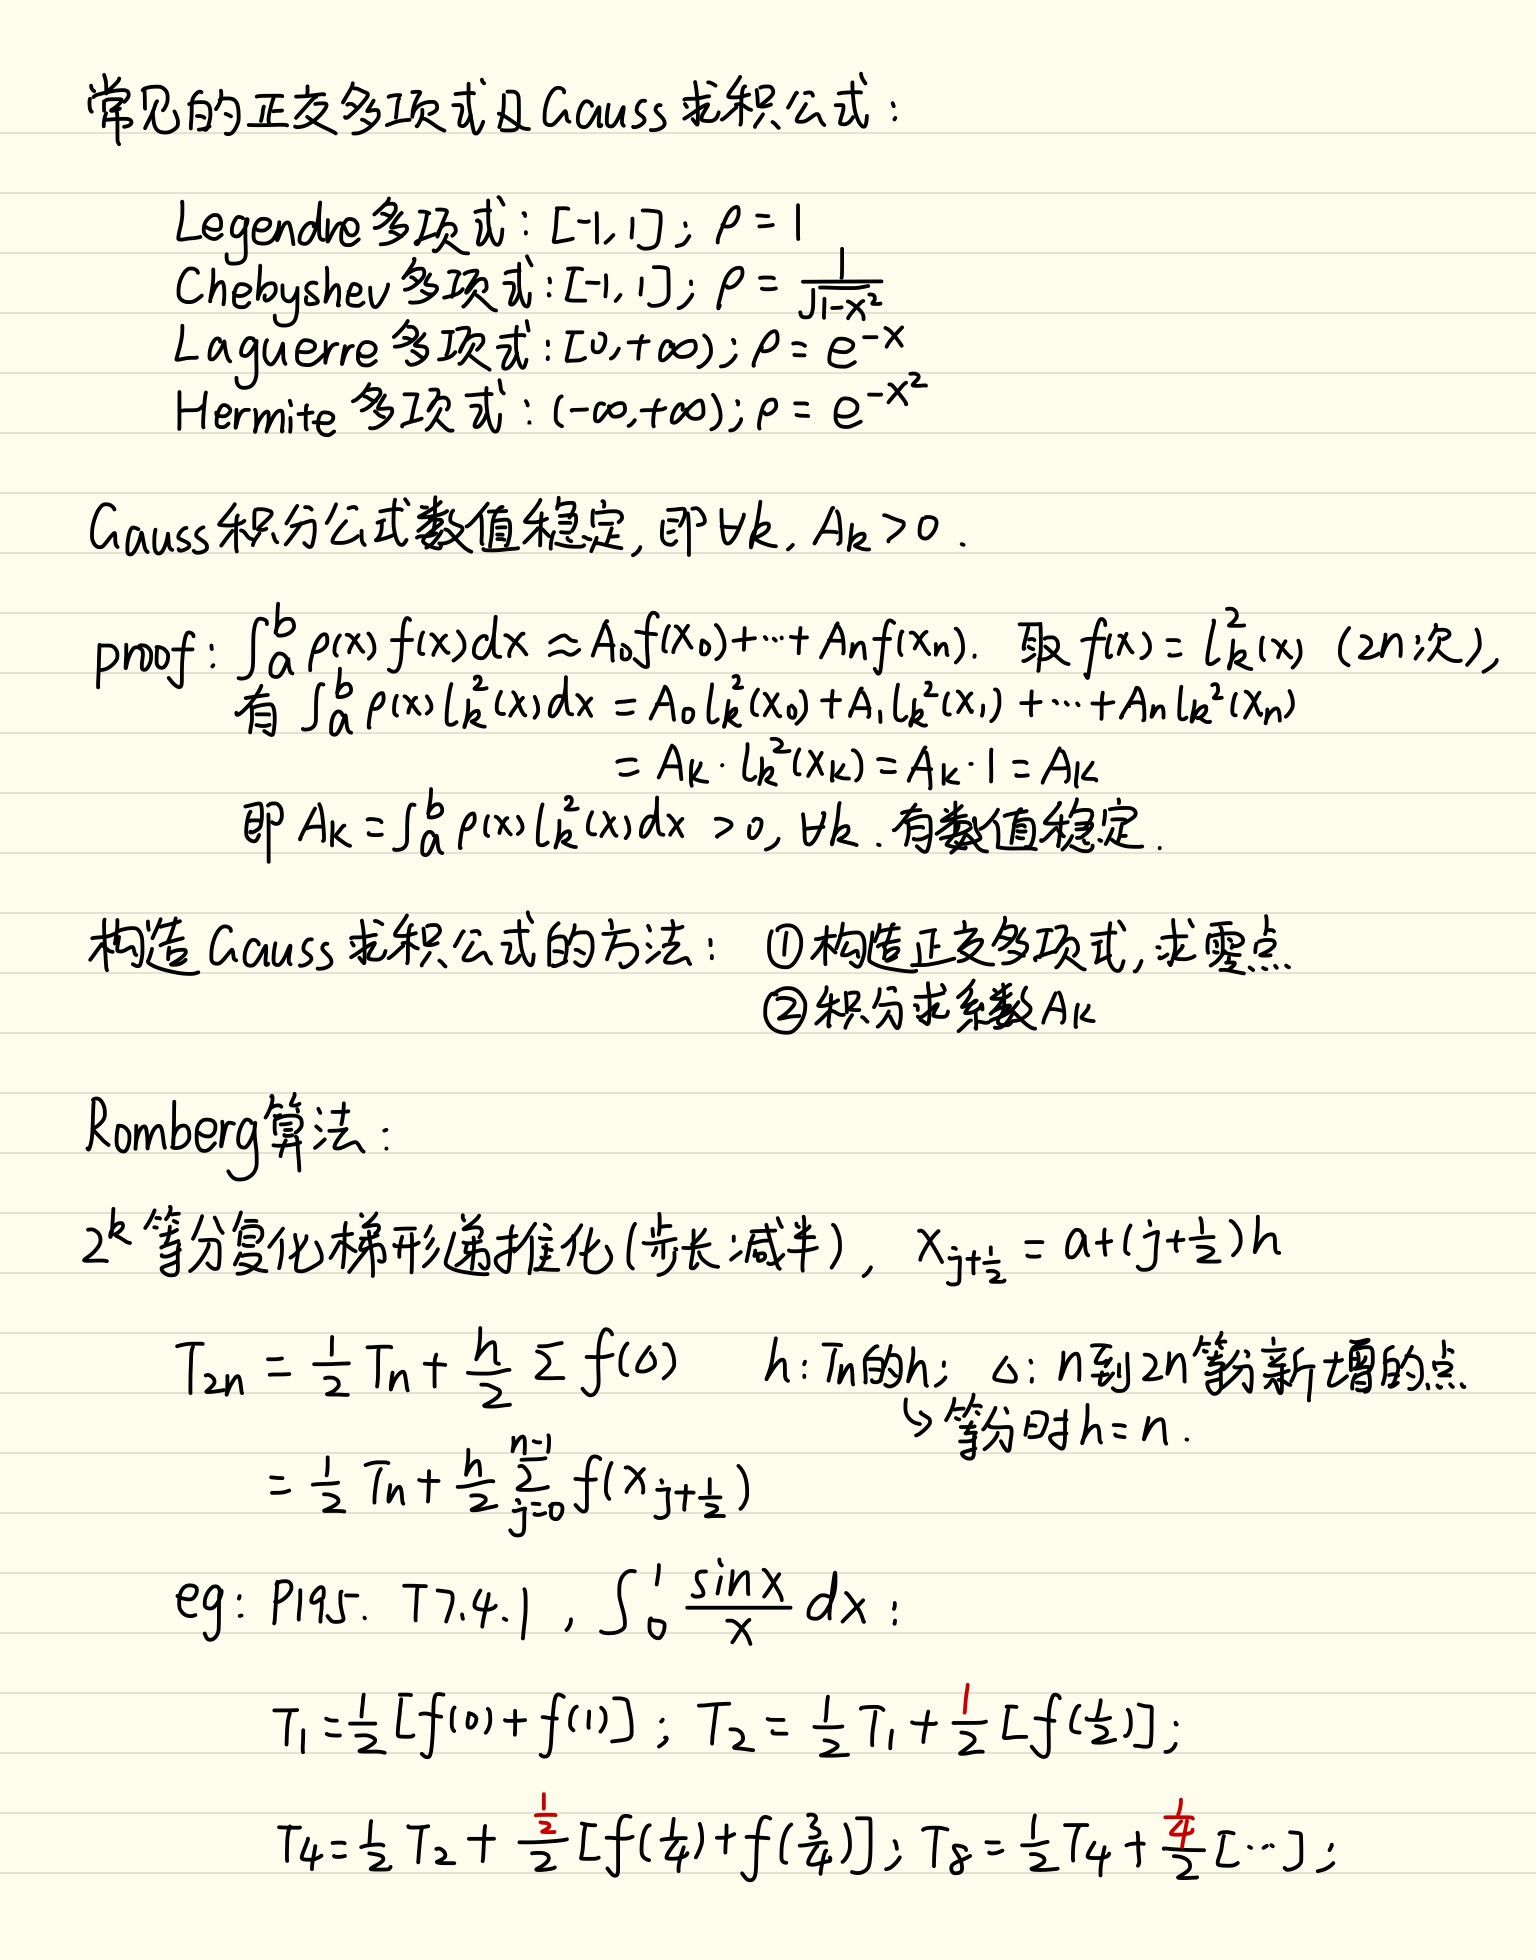 常见的正交多项式及Gauss求积公式：
Legendre多项式：[-1,1]；ρ=1
Chebyshev多项式：[-1,1]；ρ=1/√(1-x²)
Laguerre多项式：[0,+∞)；ρ=e^{-x}
Hermite多项式：(-∞,+∞)；ρ=e^{-x²}
Gauss积分公式数值稳定,即∀k, A_k>0.
proof: ∫_a^b ρ(x)f(x)dx ≈ A₀f(x₀)+⋯+A_nf(x_n). 取f(x)=l_k²(x) (2n次),
有 ∫_a^b ρ(x)l_k²(x)dx = A₀l_k²(x₀)+A₁l_k²(x₁)+⋯+A_nl_k²(x_n)
= A_k·l_k²(x_k)=A_k·1=A_k
即 A_k=∫_a^b ρ(x)l_k²(x)dx >0, ∀k. 有数值稳定.
构造Gauss求积公式的方法：①构造正交多项式,求零点
②积分求系数A_k
Romberg算法：
2^k等分复化梯形递推化(步长减半), x_{j+1/2} = a+(j+1/2)h
T_{2n} = 1/2 T_n + h/2 Σ f(△) h: T_n的h; △: n到2n等分新增的点
↳等分时h=n.
= 1/2 T_n + h/2 Σ_{j=0}^{n-1} f(x_{j+1/2})
eg: P195. T7.4.1, ∫_0^1 sinx/x dx:
T₁=1/2[f(0)+f(1)]; T₂=1/2 T₁+1/2[f(1/2)];
T₄=1/2 T₂+(1/2)/2[f(1/4)+f(3/4)]; T₈=1/2 T₄+(1/4)/2[⋯];